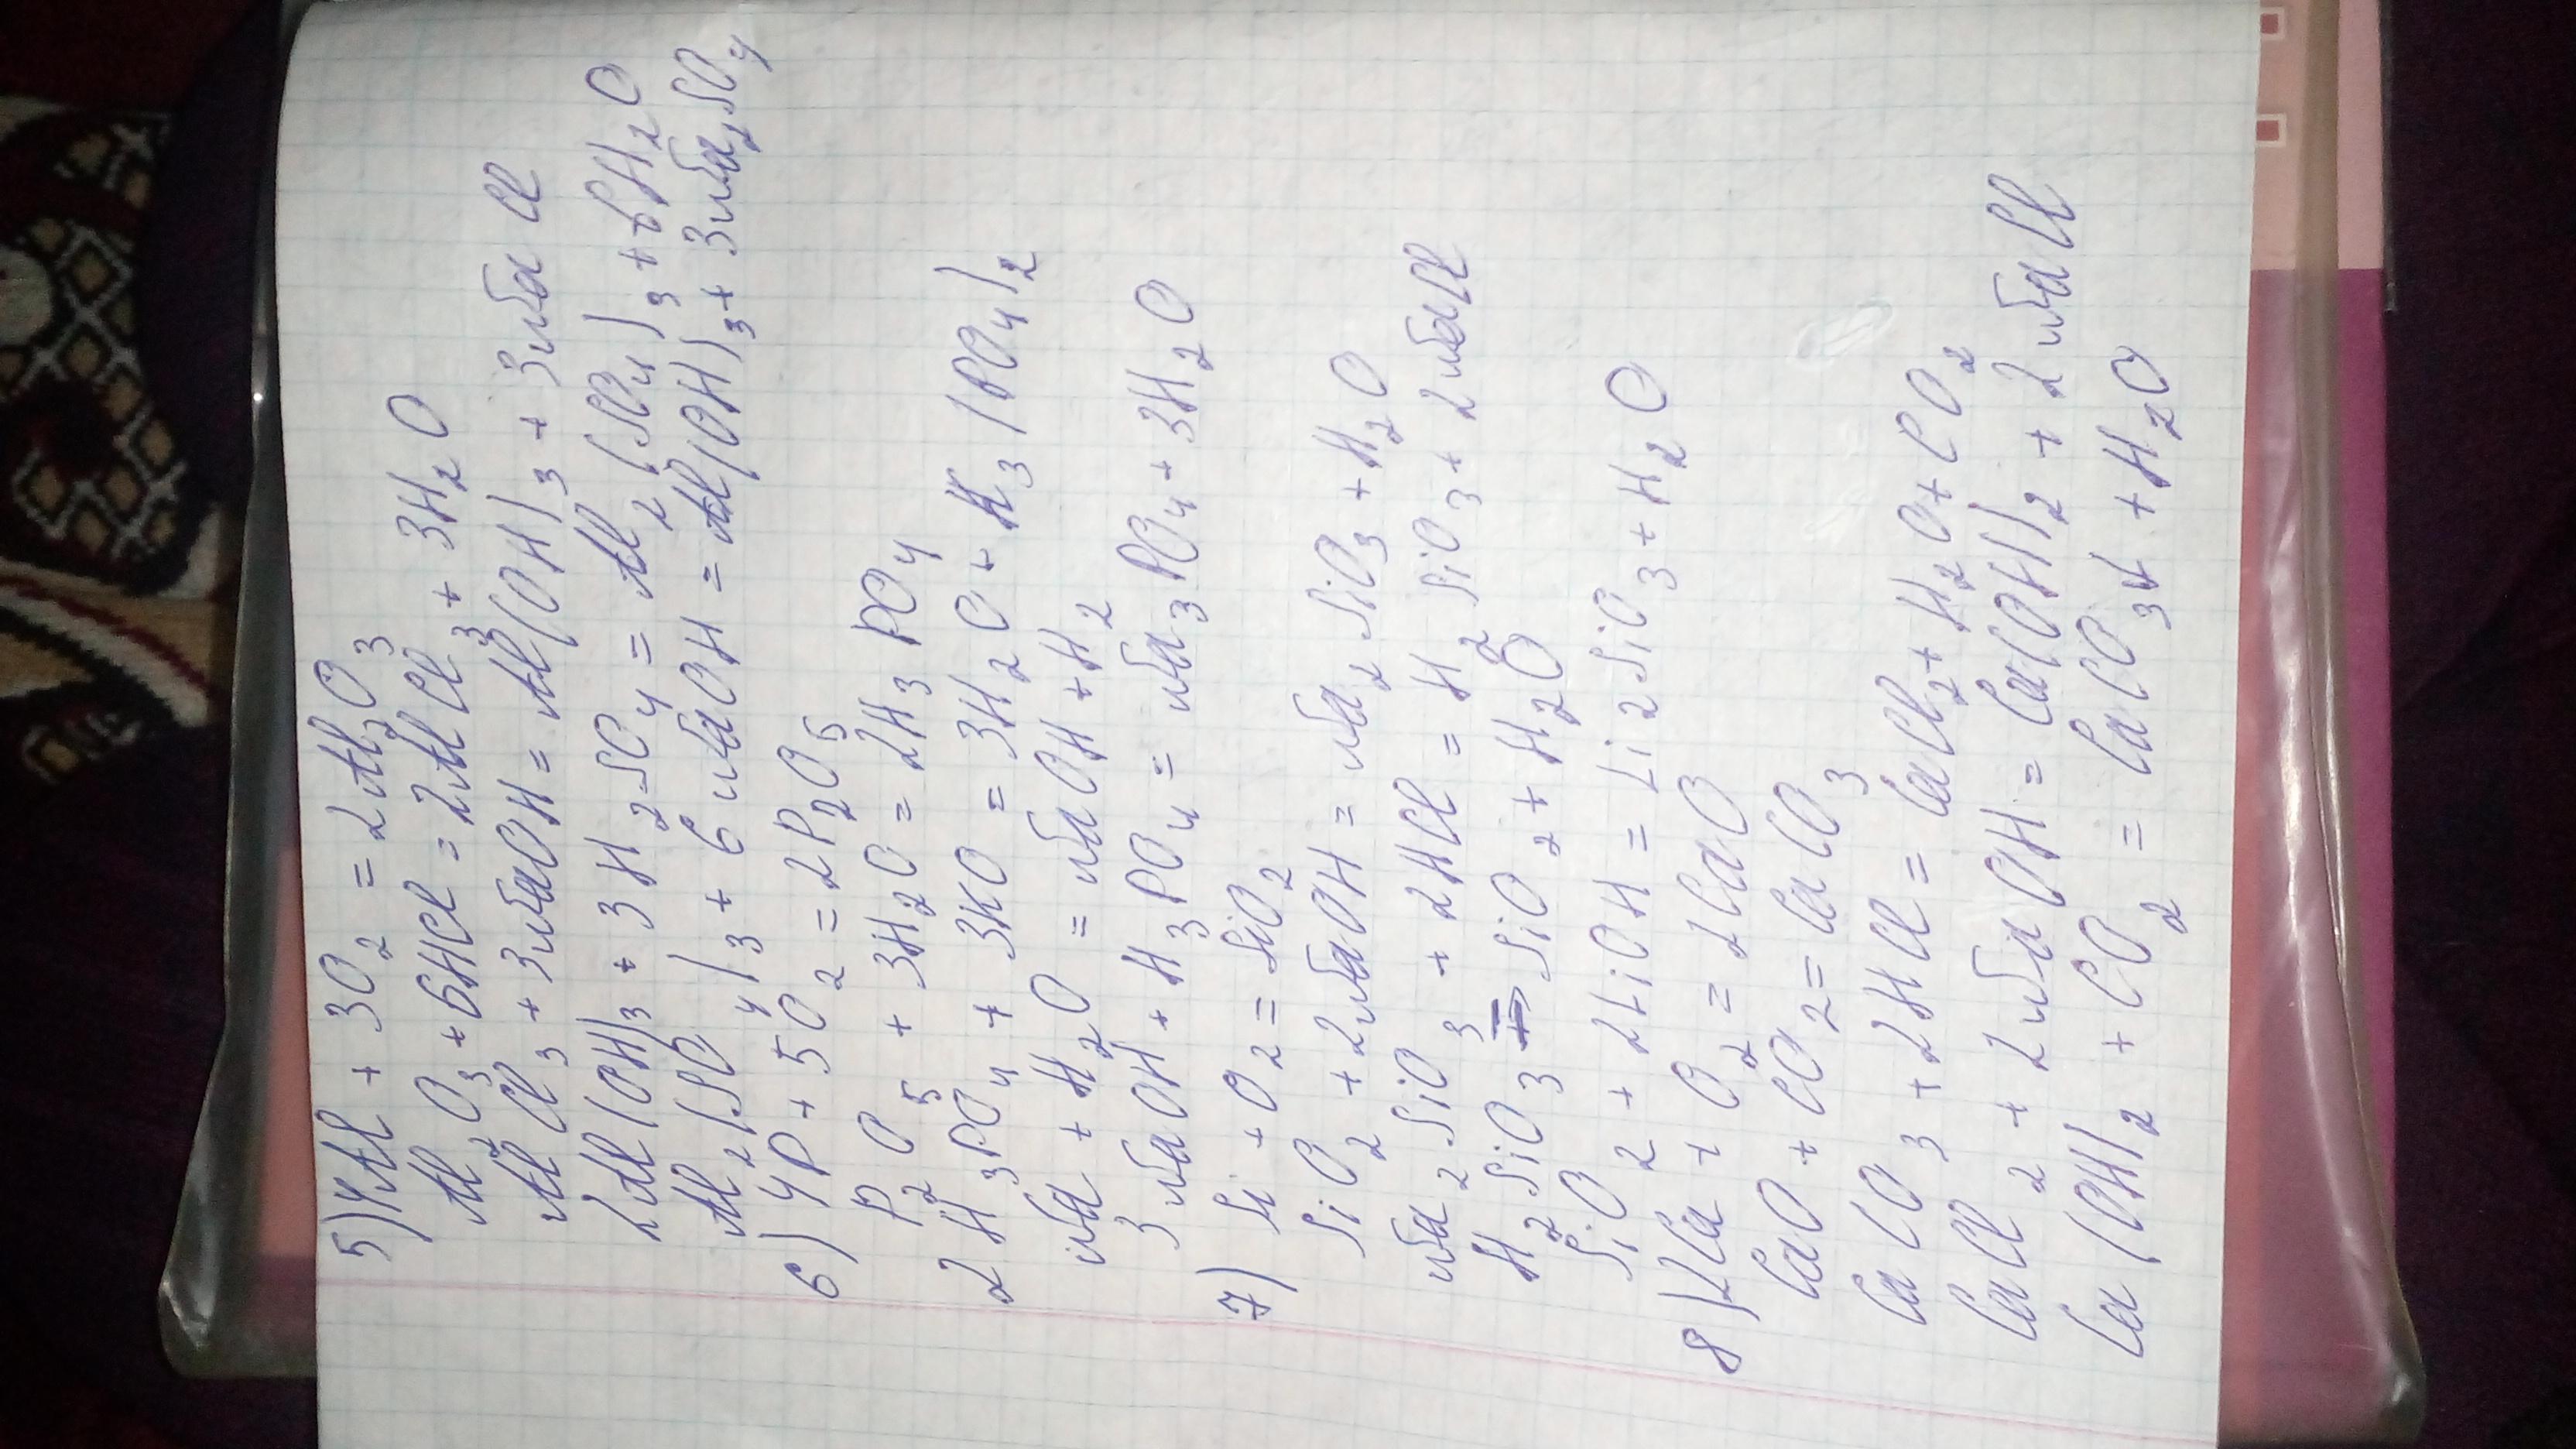 5) 4Al + 3O2 = 2Al2O3
Al2O3 + 6HCl = 2AlCl3 + 3H2O
AlCl3 + 3NaOH = Al(OH)3 + 3NaCl
2Al(OH)3 + 3H2SO4 = Al2(SO4)3 + 6H2O
Al2(SO4)3 + 6NaOH = Al(OH)3 + 3Na2SO4
6) 4P + 5O2 = 2P2O5
P2O5 + 3H2O = 2H3PO4
2H3PO4 + 3KO = 3H2O + K3(PO4)2
Na + H2O = NaOH + H2
3NaOH + H3PO4 = Na3PO4 + 3H2O
7) Si + O2 = SiO2
SiO2 + 2NaOH = Na2SiO3 + H2O
Na2SiO3 + 2HCl = H2SiO3 + 2NaCl
H2SiO3 = SiO2 + H2O
SiO2 + 2LiOH = Li2SiO3 + H2O
8) 2Ca + O2 = 2CaO
CaO + CO2 = CaCO3
CaCO3 + 2HCl = CaCl2 + H2O + CO2
CaCl2 + 2NaOH = Ca(OH)2 + 2NaCl
Ca(OH)2 + CO2 = CaCO3↓ + H2O